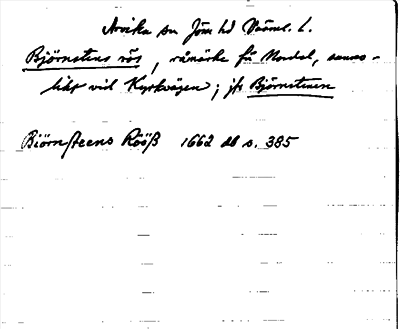 Arvika sn Jöss hd Värml. l.
Björnstens rös, råmärke för Mordal, sanno-
likt vid Kyrkvägen; jfr Björnstenen
Biörnsteens Rööß 1662 db s. 385